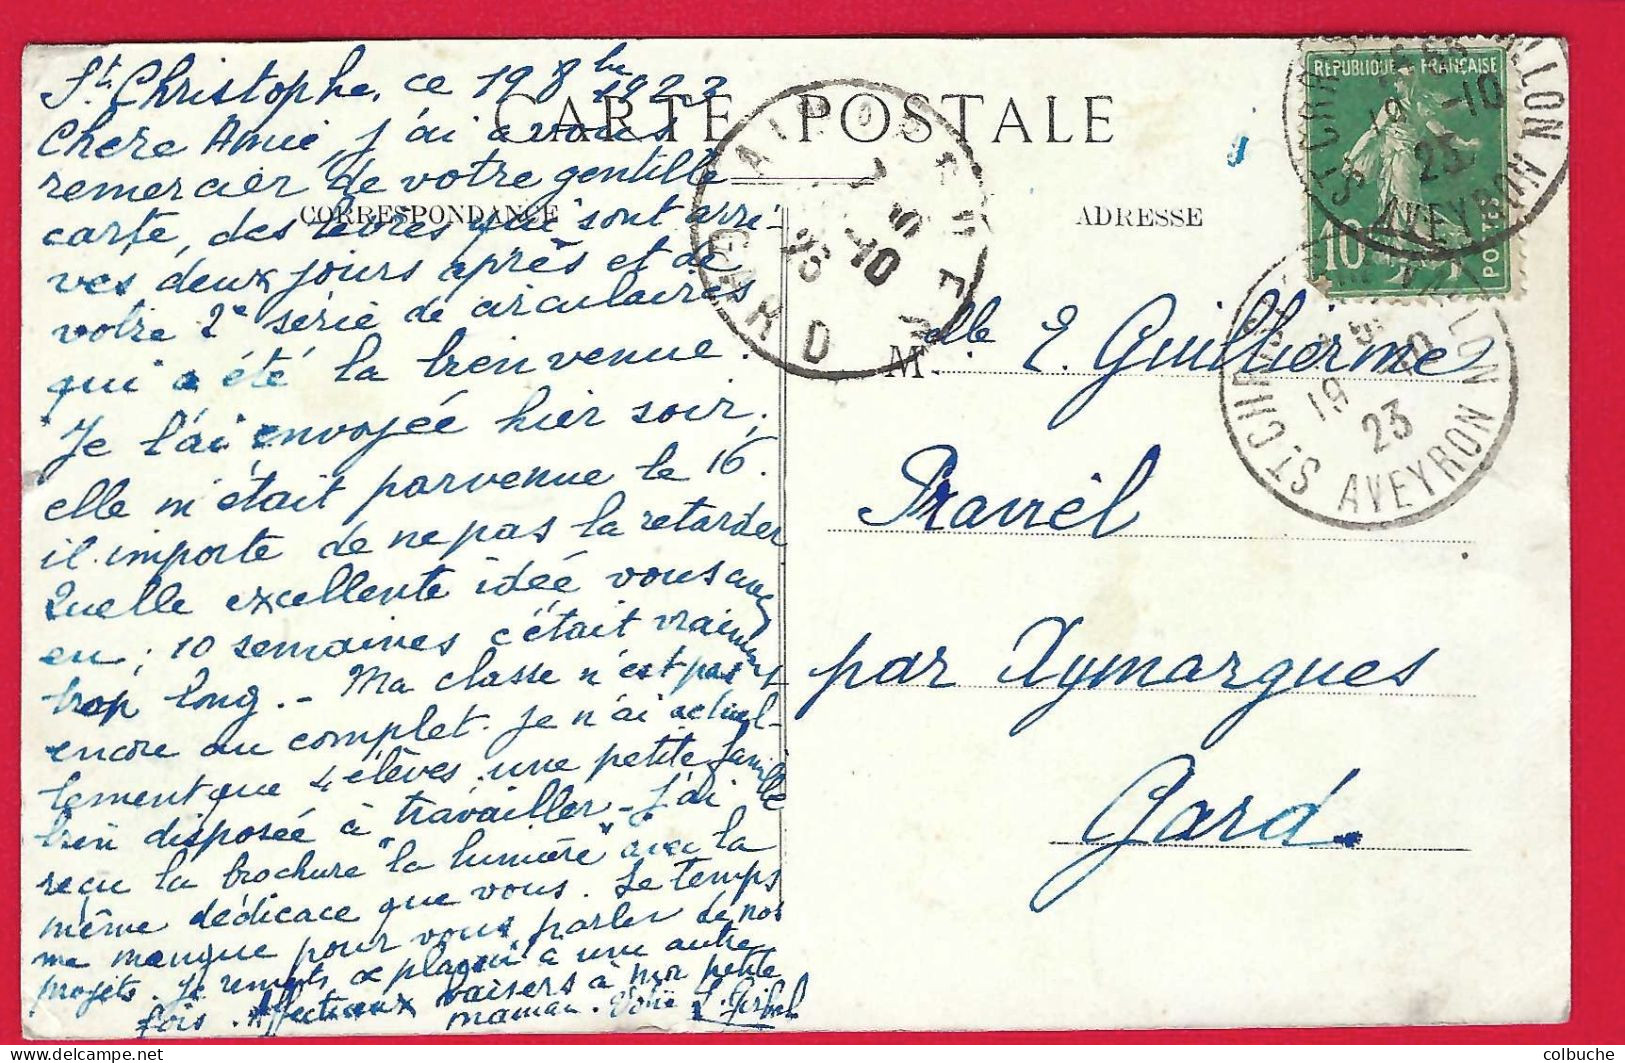 St. Christophe, ce 19 8bre 1923
CARTE POSTALE
Chère Amie, j'ai à vous
remercier de votre gentille
CORRESPONDANCE
carte, des livres qui sont arri-
vés deux jours après et de
votre 2e série de circulaires
qui a été la bien venue.
Je l'ai envoyée hier soir,
elle m'était parvenue le 16.
il importe de ne pas la retarder
Quelle excellente idée vous avez
eu; 10 semaines c'était vraiment
trop long. - Ma classe n'est pas
encore au complet. Je n'ai actuel-
lement que 4 élèves, une petite famille
bien disposée à travailler - J'ai
reçu la brochure "la lumière" avec la
même dédicace que vous. Le temps
me manque pour vous parler de nos
projets. Je remets ce plaisir à une autre
fois. Affectueux baisers à petite
maman. Votre
ADRESSE
Melle E. Guilhierme
Praviel
par Aymargues
Gard.
REPUBLIQUE FRANÇAISE
10
POSTES
ST CHR VALLON
19 -10
23
AVEYRON
ST CHR VALLON
19 10
23
AVEYRON
GARD